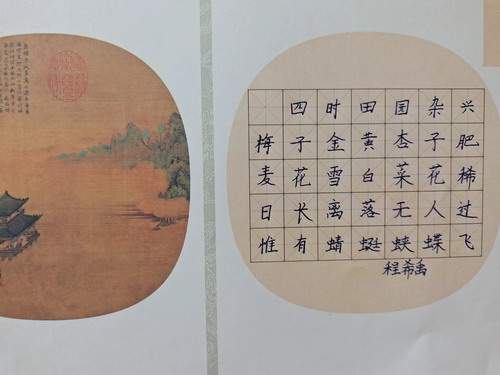 四时田园杂兴
梅子金黄杏子肥
麦花雪白菜花稀
日长离落无人过
惟有蜻蜓蛱蝶飞
程希禹